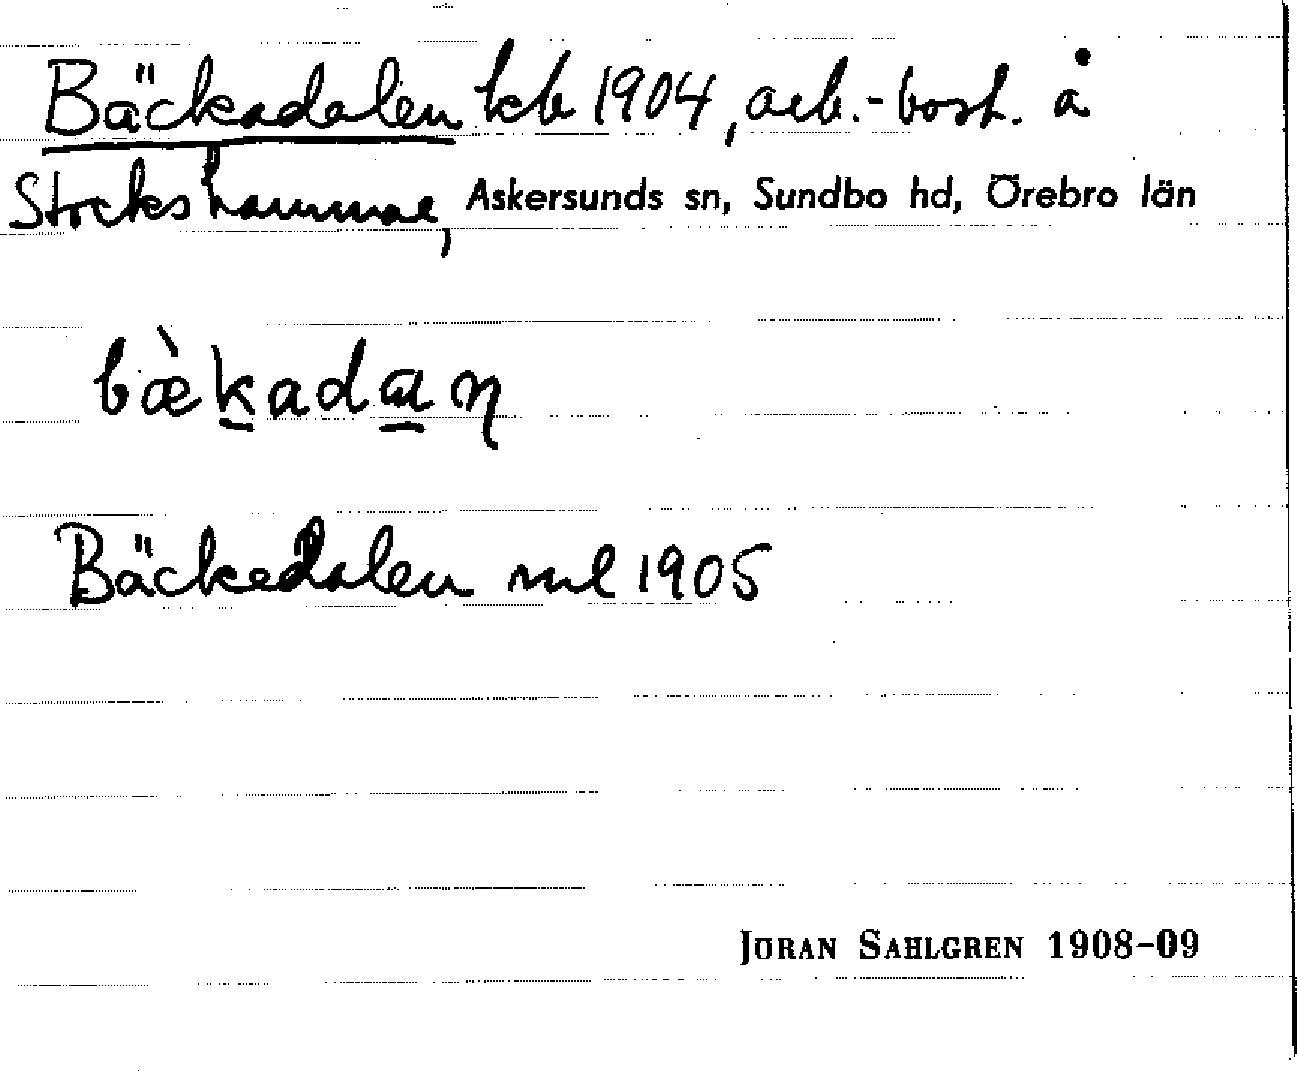 Bäckadalen kb 1904, arb.-bost. å
Stockshammar, Askersunds sn, Sundbo hd, Örebro län
bæ̀k̲adɑ̲n
Bäckedalen ml 1905
JÖRAN SAHLGREN 1908-09